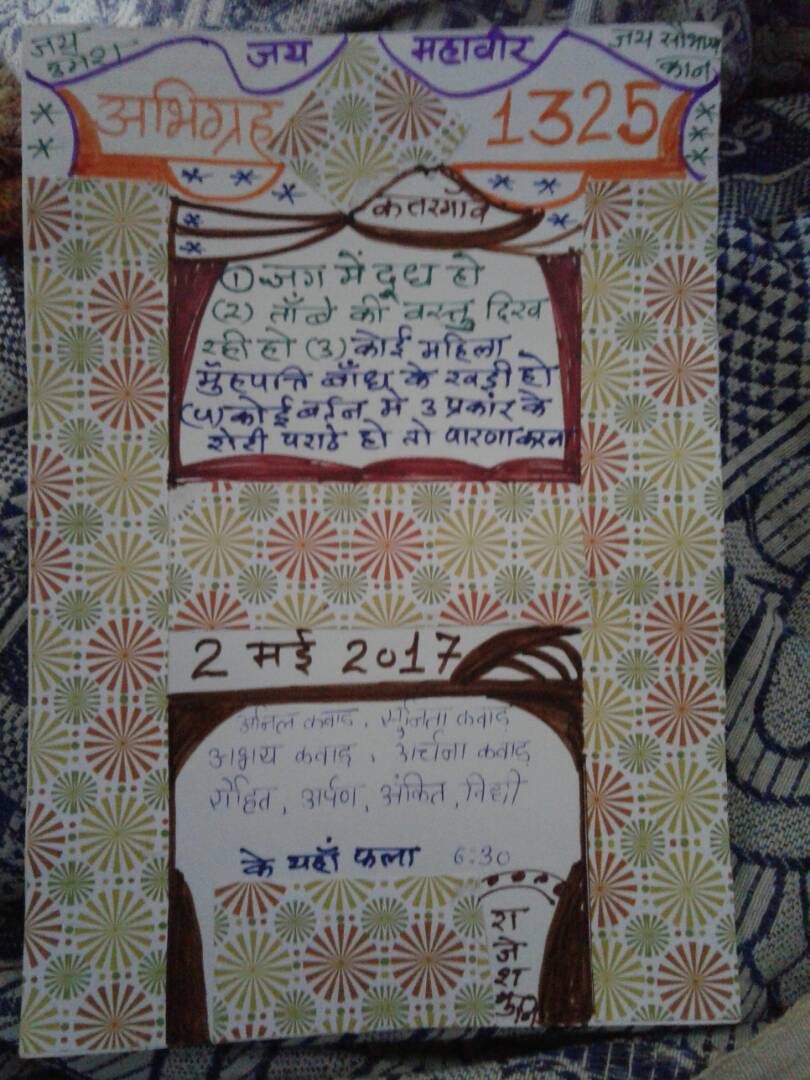 जय उमेश
जय महावीर
जय सौभाग्य कान
अभिग्रह 1325
कतरगाँव
(1) जग में दूध हो
(2) ताँबे की वस्तु दिख
रही हो (3) कोई महिला
मुँहपत्ति बाँध के खड़ी हो
(4) कोई बर्तन मे 3 प्रकार के
रोटी पराठे हो तो पारणा करना
2 मई 2017
अनिल कवाड़, सुनिता कवाड़
अभय कवाड़, अर्चना कवाड़
रोहित, अर्पण, अंकित, निधी
के यहाँ फला 6:30
राजेश मुनि